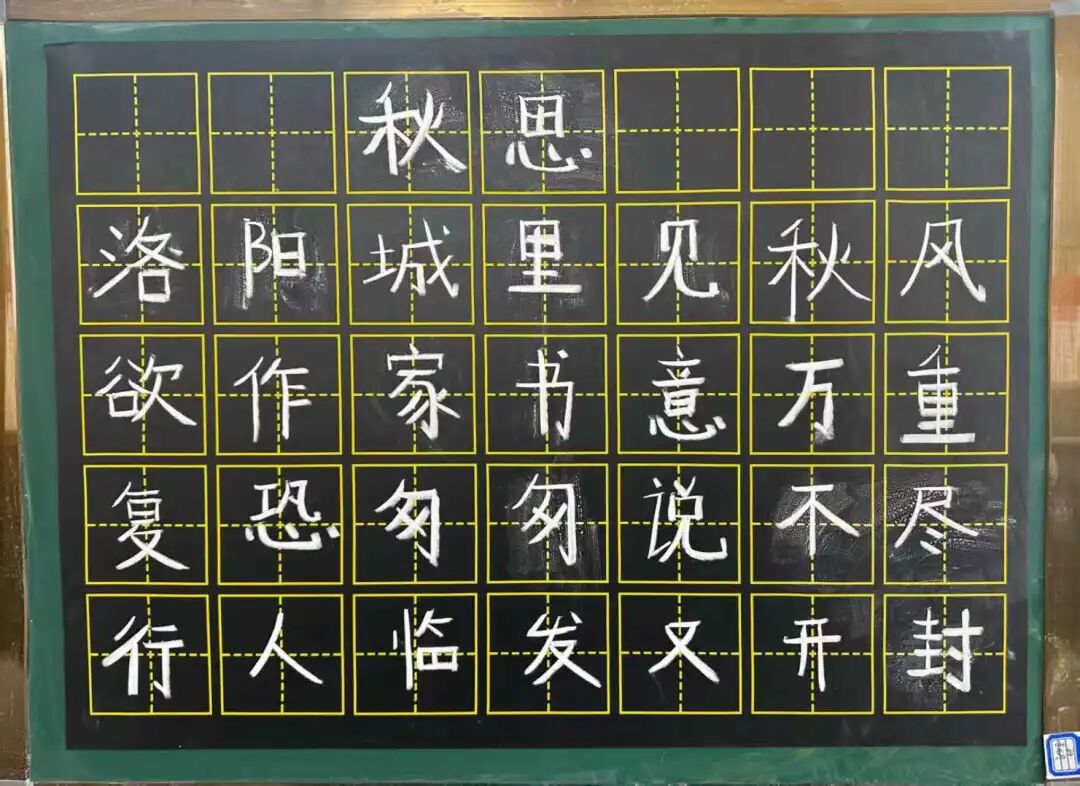 秋思
洛阳城里见秋风
欲作家书意万重
复恐匆匆说不尽
行人临发又开封